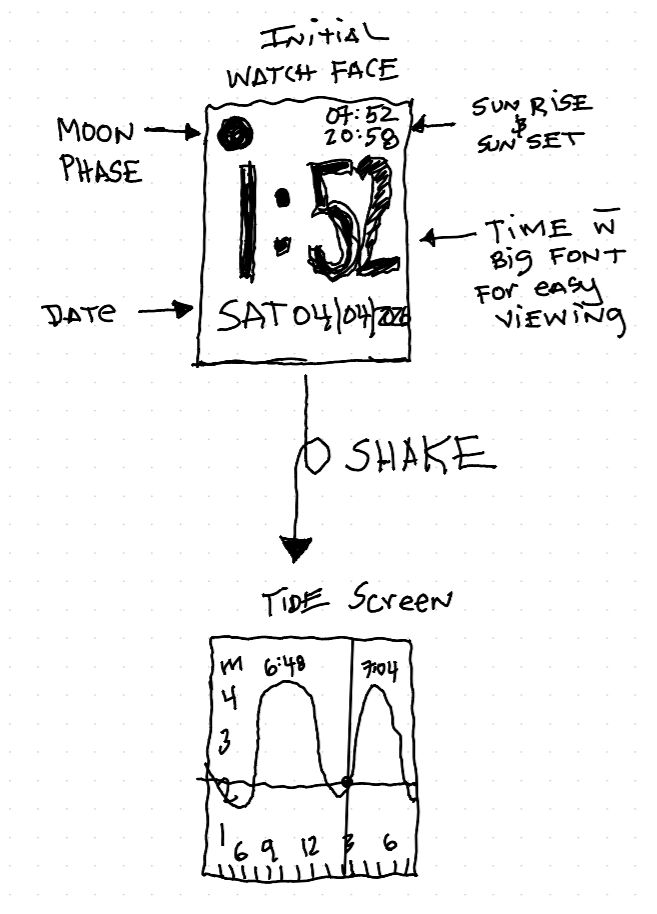 INITIAL
WATCH FACE
MOON
PHASE
07:52
20:58
SUN RISE
&
SUN SET
1:52
TIME W̅
BIG FONT
FOR easy
VIEWING
DATe
SAT 04/04/2026
SHAKE
TIDE Screen
m
6:48
7:04
4
3
2
1
6 9 12 3 6